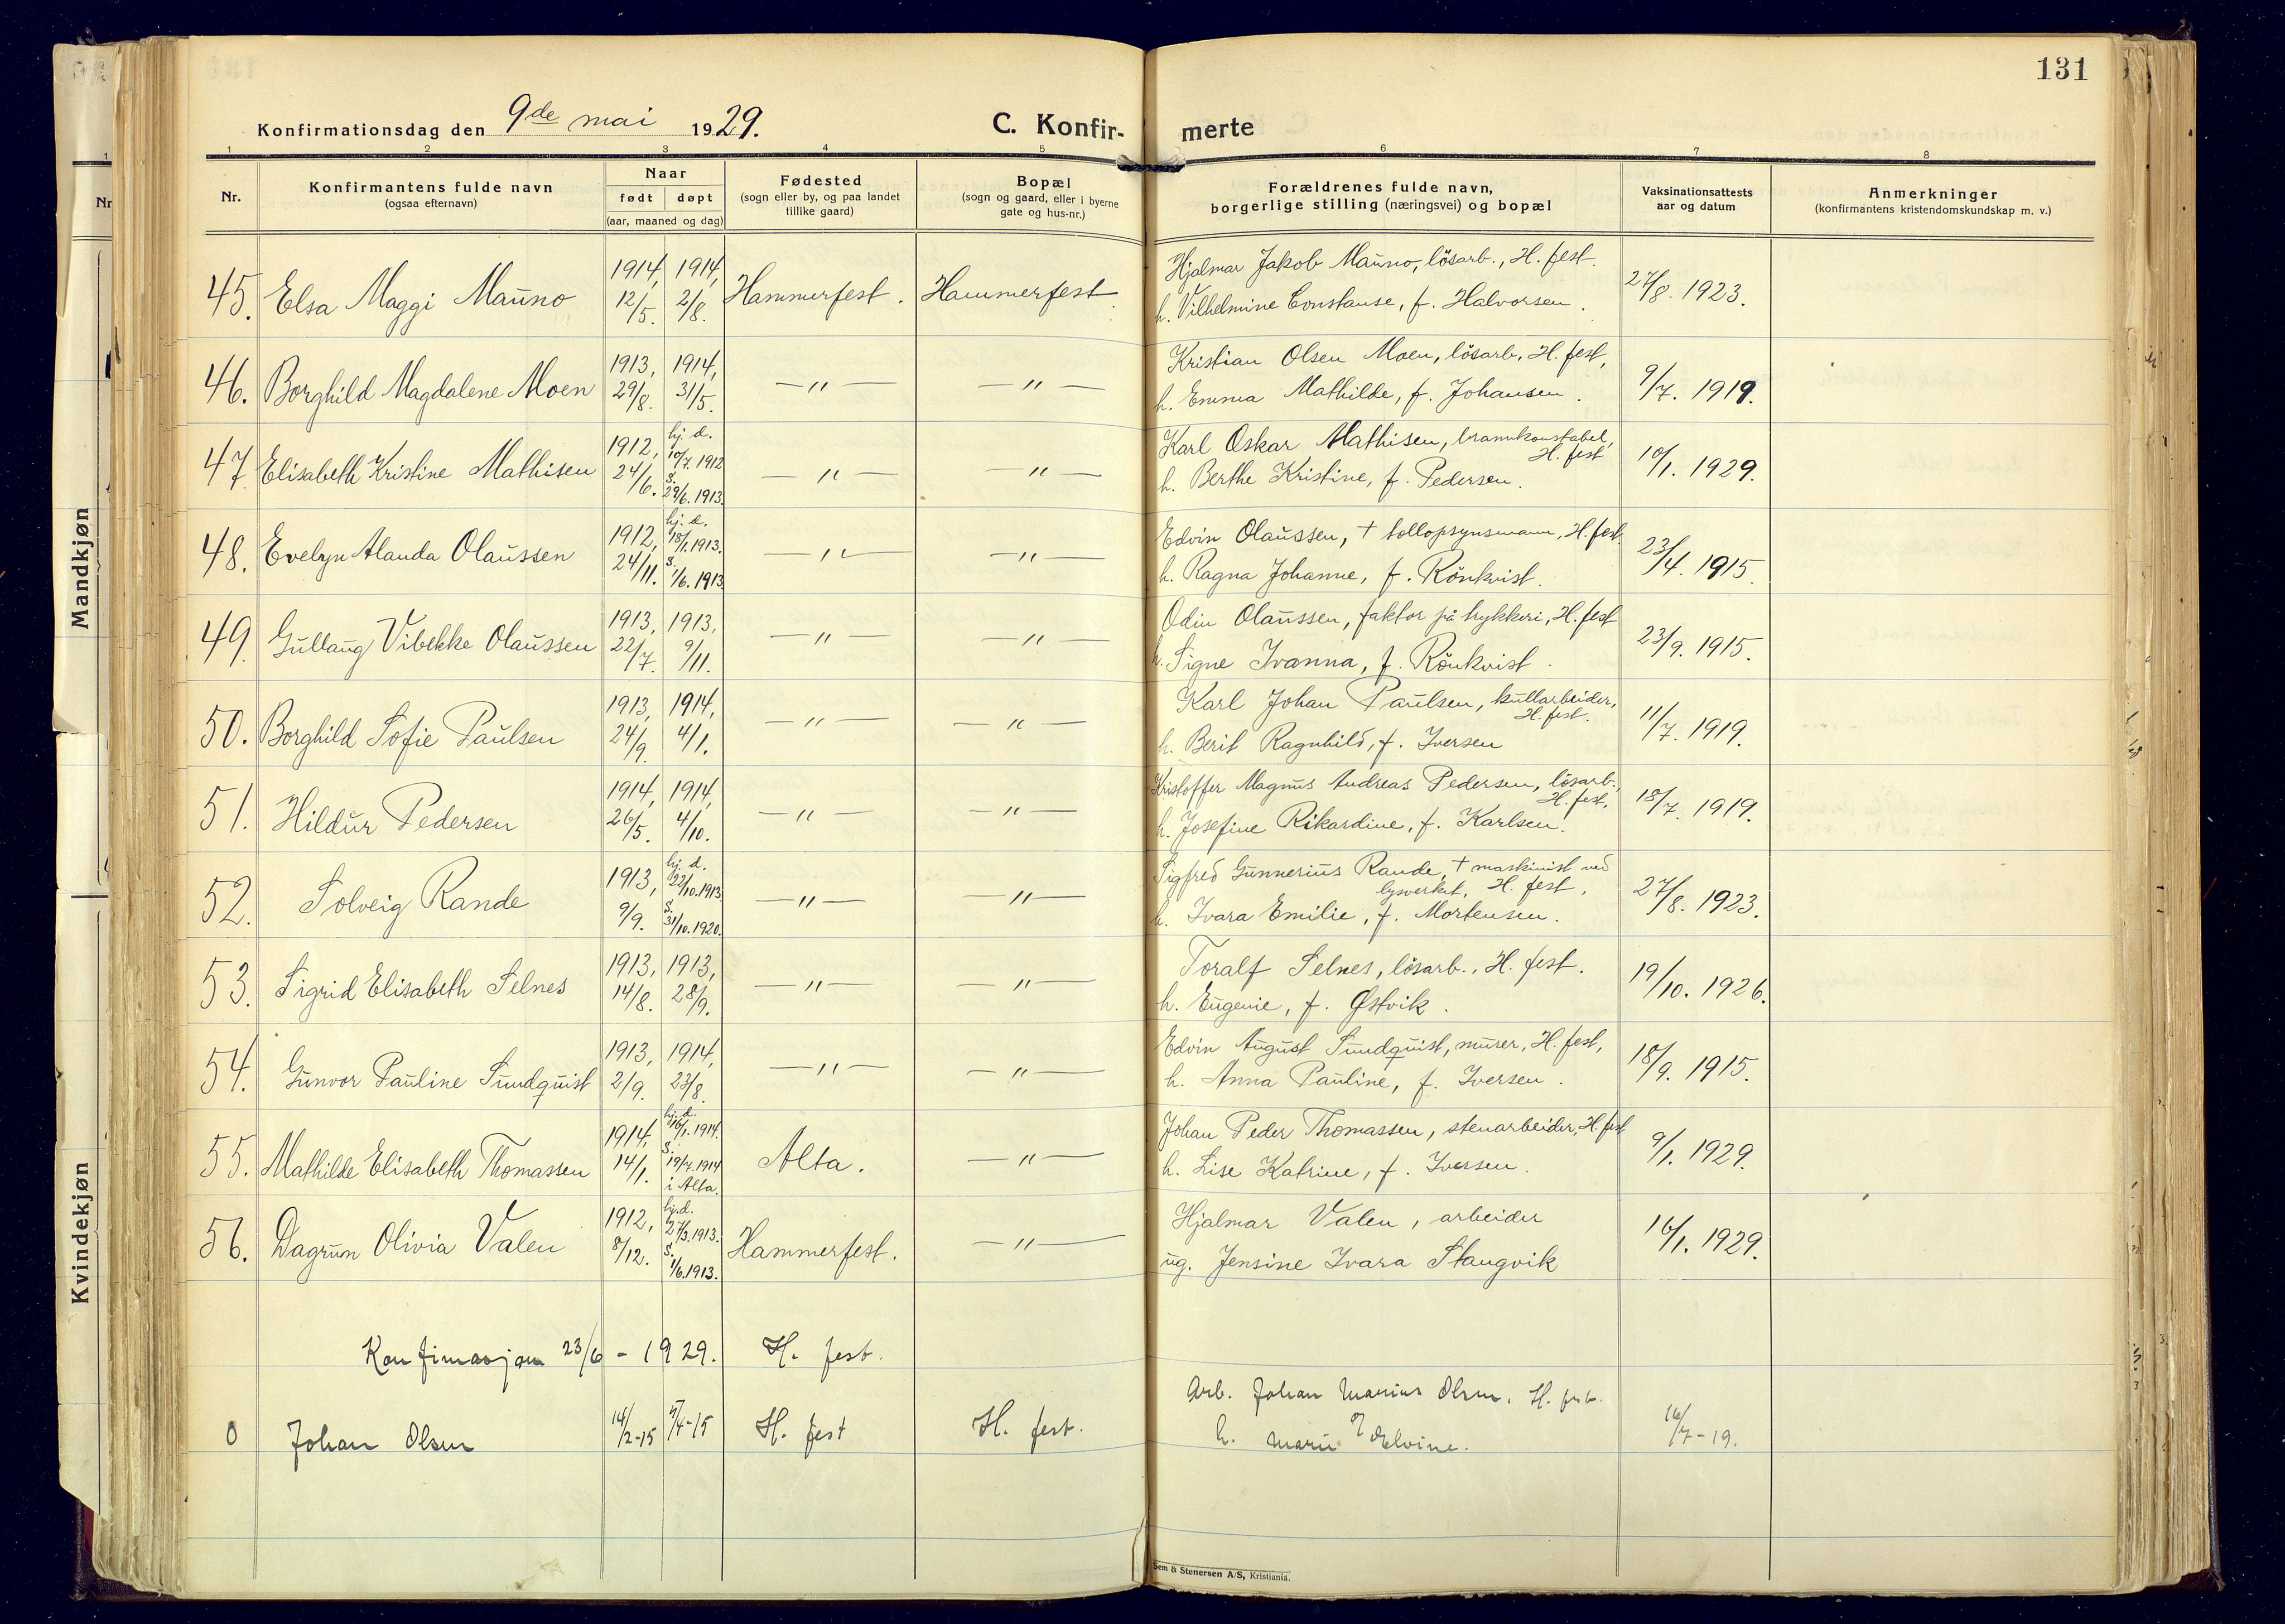 131
Konfirmationsdag den 9de mai 1929. C. Konfir- merte
1 2 3 4 5 6 7 8
Nr. Konfirmantens fulde navn (ogsaa efternavn) Naar født døpt (aar, maaned og dag) Fødested (sogn eller by, og paa landet tillike gaard) Bopæl (sogn og gaard, eller i byerne gate og hus-nr.) Forældrenes fulde navn, borgerlige stilling (næringsvei) og bopæl Vaksinationsattests aar og datum Anmerkninger (konfirmantens kristendomskundskap m. v.)
45. Elsa Maggi Mauno 1914, 12/5. 1914, 2/8. Hammerfest. Hammerfest Hjalmar Jakob Mauno, lösarb., H. fest.
h. Vilhelmine Constanse, f. Halvorsen. 27/8. 1923.
46. Borghild Magdalene Moen 1913, 29/8. 1914, 31/5. — " — — " — Kristian Olsen Moen, lösarb, H. fest,
h. Emma Mathilde, f. Johansen. 9/7. 1919.
47. Elisabeth Kristine Mathisen 1912, 24/6. hj. d. 10/7. 1912 S. 29/6. 1913. — " — — " — Karl Oskar Mathisen, brannkonstabel, H. fest
h. Berthe Kristine, f. Pedersen. 10/1. 1929.
48. Evelyn Alanda Olaussen 1912, 24/11. hj. d. 18/1. 1913. S. 1/6. 1913 — " — — " — Edvin Olaussen, † tollopsynsmann, H. fest.
h. Ragna Johanne, f. Rönkvist. 23/4. 1915.
49. Gullaug Vibekke Olaussen 1913, 22/7. 1913, 9/11. — " — — " — Odin Olaussen, faktor på trykkeri, H. fest
h. Signe Ivanna, f. Rönkvist. 23/9. 1915.
50. Borghild Sofie Paulsen 1913, 24/9. 1914, 4/1. — " — — " — Karl Johan Paulsen, kullarbeider, H. fest.
h. Berit Ragnhild, f. Iversen 11/7. 1919.
51. Hildur Pedersen 1914, 26/5. 1914, 4/10. — " — — " — Kristoffer Magnus Andreas Pedersen, lösarb., H. fest,
h. Josefine Rikardine, f. Karlsen. 18/7. 1919.
52. Solveig Rande 1913, 9/9. hj. d. 22/10. 1913 S. 31/10. 1920. — " — — " — Sigfred Gunnerius Rande, † maskinist ved lysverket, H. fest.
h. Ivara Emilie, f. Mortensen. 27/8. 1923.
53. Sigrid Elisabeth Selnes 1913, 14/8. 1913, 28/9. — " — — " — Toralf Selnes, lösarb., H. fest.
h. Eugenie, f. Østvik. 19/10. 1926.
54. Gunvor Pauline Sundquist 1913, 2/9. 1914, 23/8. — " — — " — Edvin August Sundquist, murer, H. fest,
h. Anna Pauline, f. Iversen. 18/9. 1915.
55. Mathilde Elisabeth Thomassen 1914, 14/1. hj. d. 16/1. 1914. S. 19/7. 1914 i Alta. Alta. — " — Johan Peder Thomassen, stenarbeider, H. fest
h. Lise Katrine, f. Iversen. 9/1. 1929.
56. Dagrun Olivia Valen 1912, 8/12. hj. d. 27/3. 1913. S. 1/6. 1913. Hammerfest. — " — Hjalmar Valen, arbeider
ug. Jensine Ivara Stangvik 16/1. 1929.
Konfirmasjon 23/6 - 1929. H. fest.
0 Johan Olsen 14/2-15 5/4-15 H. fest H. fest. Arb. Johan Marius Olsen. H. fest.
h. Marie Elvine. 16/7-19.
Sem & Stenersen A/S, Kristiania.
Mandkjøn
Kvindekjøn
Nr
1